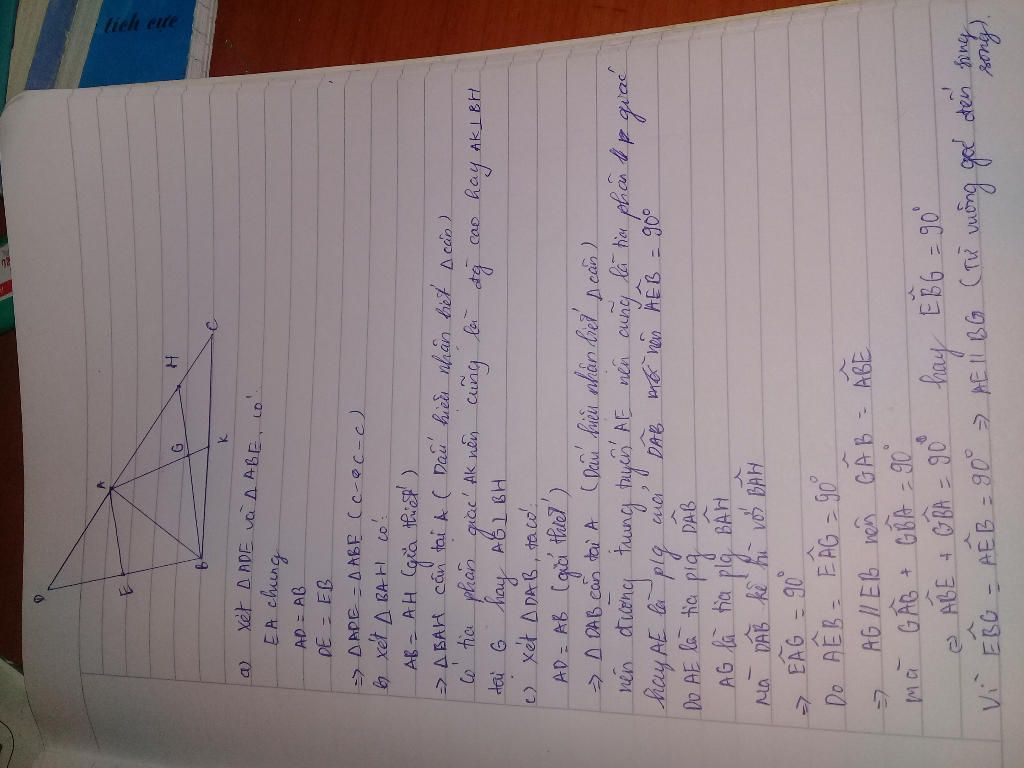 tích cực
D
A
E
H
G
B
K
C
a) Xét Δ ADE và Δ ABE, có:
EA chung
AD = AB
DE = EB
=> Δ ADE = Δ ABE (c-c-c)
b) Xét Δ BAH có:
AB = AH (giả thiết)
=> Δ BAH cân tại A (Dấu hiệu nhận biết Δ cân)
Có tia phân giác AK nên cũng là đg cao hay AK ⊥ BH
tại G hay AG ⊥ BH
c) Xét Δ DAB, ta có:
AD = AB (giả thiết)
=> Δ DAB cân tại A (Dấu hiệu nhận biết Δ cân)
nên đường trung tuyến AE nên cũng là tia phân giác
hay AE là p/g của DAB nên AÊB = 90°
Do AE là tia p/g DÂB
AG là tia p/g BÂH
Mà DÂB kề bù với BÂH
=> EÂG = 90°
Do AÊB = EÂG = 90°
=> AG // EB nên GÂB = AB̂E
mà GÂB + GB̂A = 90°
AB̂E + GB̂A = 90° hay EB̂G = 90°
Vì EB̂G = AÊB = 90° => AE // BG (Từ vuông góc đến song song).